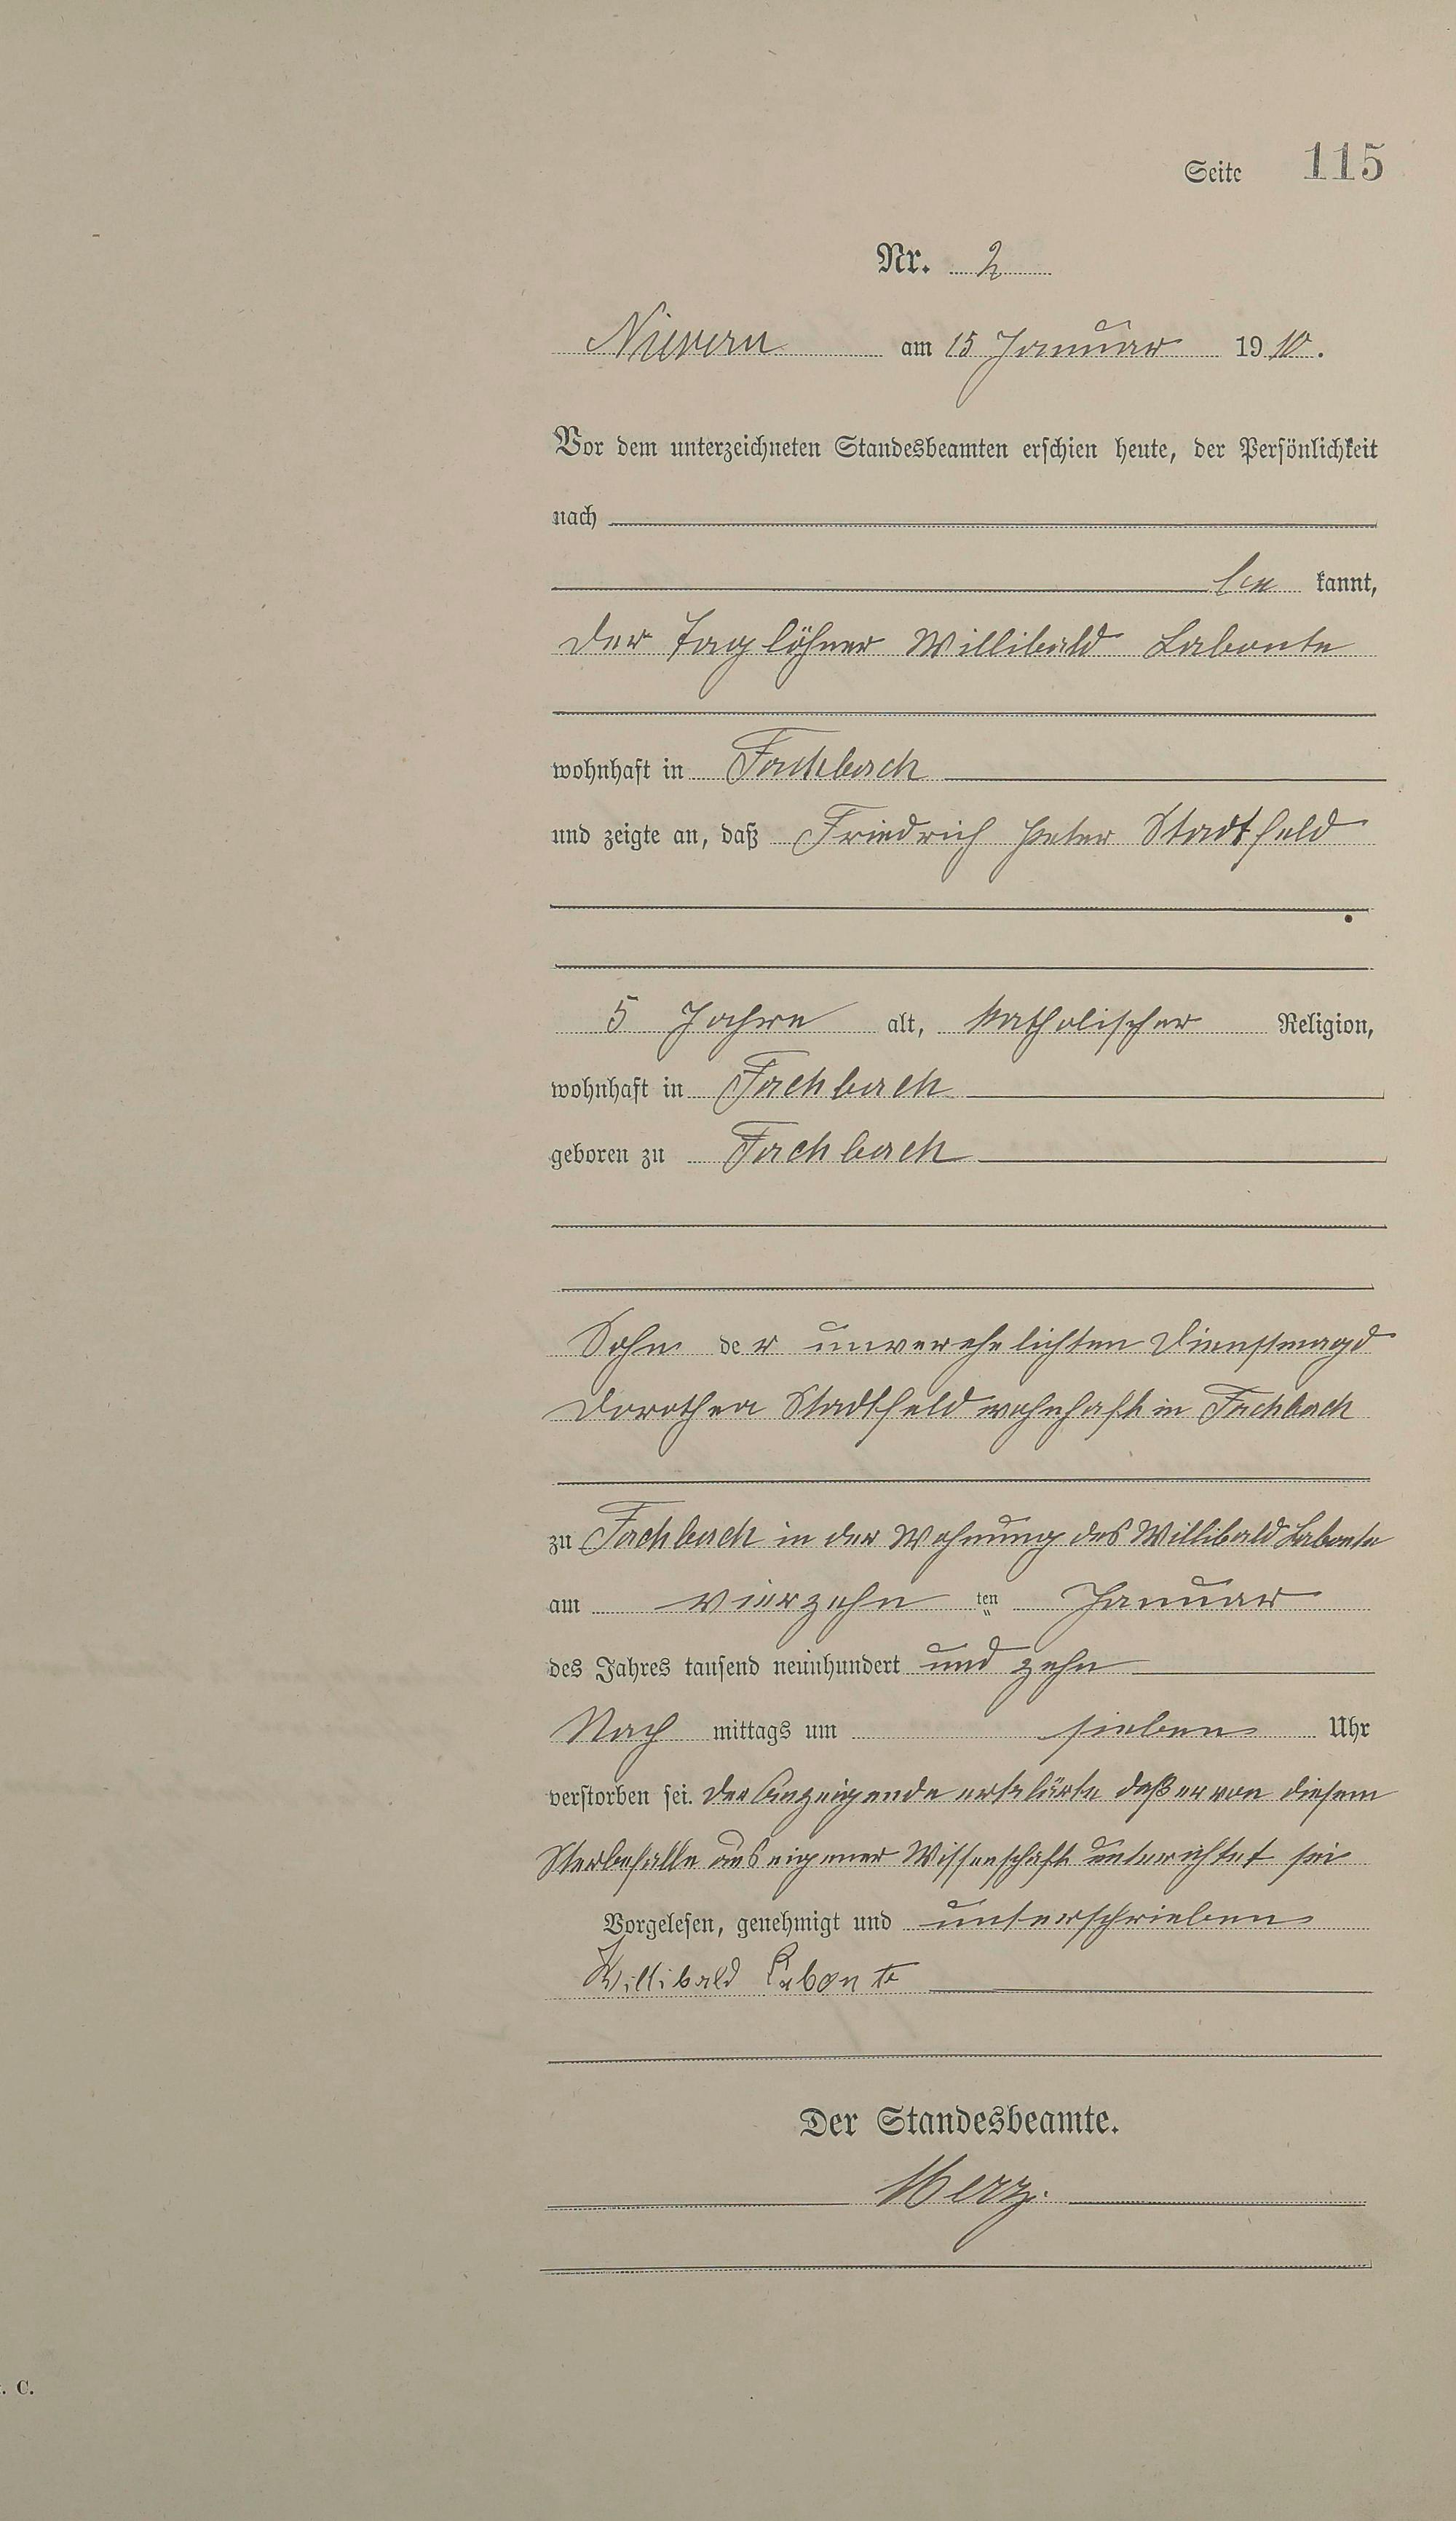 Seite 115
Nr. 2
Nievern am 15 Januar 1910.
Vor dem unterzeichneten Standesbeamten erschien heute, der Persönlichkeit
nach
be kannt,
der Taglöhner Willibald Labonte
wohnhaft in Fachbach
und zeigte an, daß Friedrich Peter Stadtfeld
5 Jahre alt, katholischer Religion,
wohnhaft in Fachbach
geboren zu Fachbach
Sohn der unverehelichten Dienstmagd
Dorothea Stadtfeld wohnhaft in Fachbach
zu Fachbach in der Wohnung des Willibald Labonte
am vierzehn ten Januar
des Jahres tausend neunhundert und zehn
Nach mittags um sieben Uhr
verstorben sei. Der Anzeigende erklärte daß er von diesem
Sterbefalle aus eigener Wissenschaft unterichtet sei
Vorgelesen, genehmigt und unterschrieben
Willibald Labonte
Der Standesbeamte.
Merz.
. C.